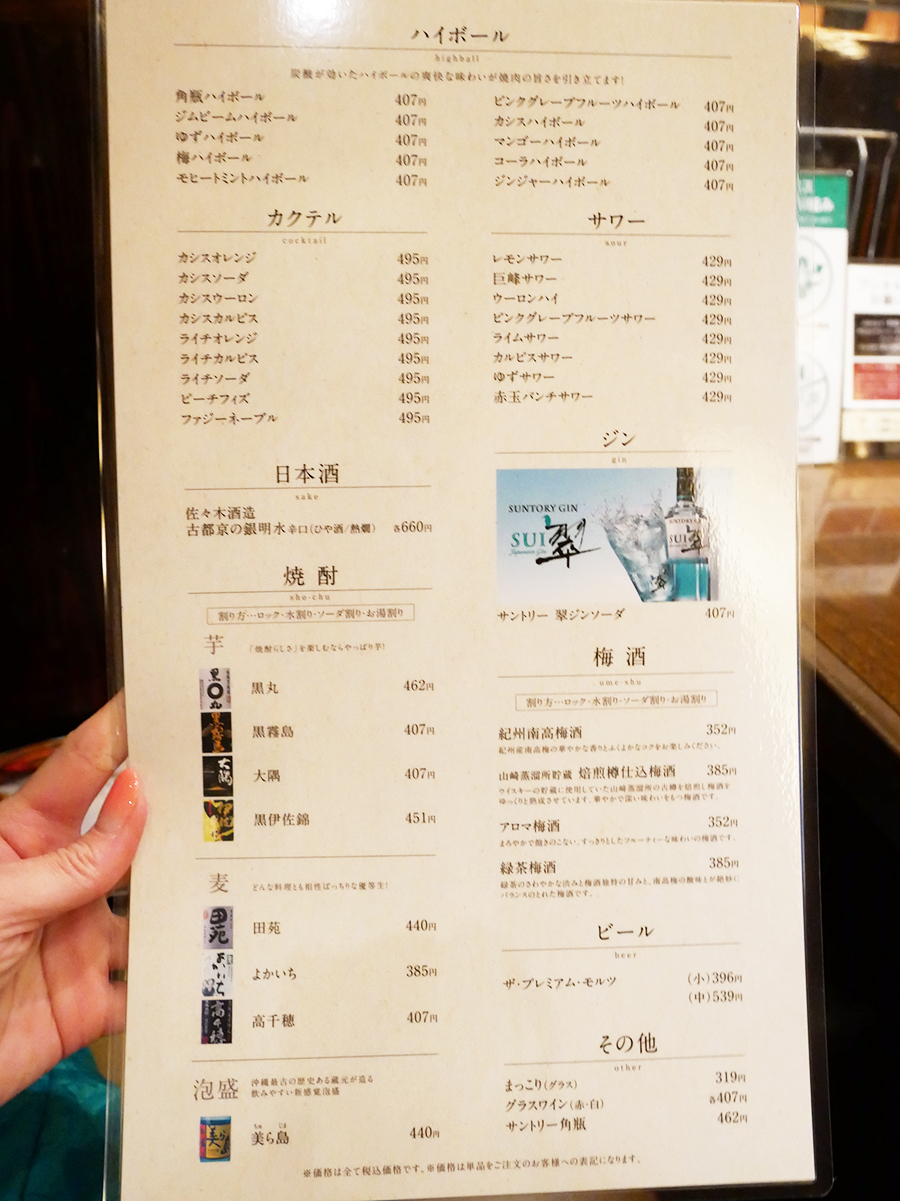 ハイボール
highball
炭酸が効いたハイボールの爽快な味わいが焼肉の旨さを引き立てます!
角瓶ハイボール 407円
ジムビームハイボール 407円
ゆずハイボール 407円
梅ハイボール 407円
モヒートミントハイボール 407円
ピンクグレープフルーツハイボール 407円
カシスハイボール 407円
マンゴーハイボール 407円
コーラハイボール 407円
ジンジャーハイボール 407円
カクテル
cocktail
カシスオレンジ 495円
カシスソーダ 495円
カシスウーロン 495円
カシスカルピス 495円
ライチオレンジ 495円
ライチカルピス 495円
ライチソーダ 495円
ピーチフィズ 495円
ファジーネーブル 495円
サワー
sour
レモンサワー 429円
巨峰サワー 429円
ウーロンハイ 429円
ピンクグレープフルーツサワー 429円
ライムサワー 429円
カルピスサワー 429円
ゆずサワー 429円
赤玉パンチサワー 429円
日本酒
sake
佐々木酒造
古都京の銀明水 辛口(ひや酒/熱燗) 各660円
焼酎
sho-chu
割り方…ロック・水割り・ソーダ割り・お湯割り
芋 「焼酎らしさ」を楽しむならやっぱり芋!
黒丸 462円
黒霧島 407円
大隅 407円
黒伊佐錦 451円
麦 どんな料理とも相性ばっちりな優等生!
田苑 440円
よかいち 385円
高千穂 407円
泡盛 沖縄最古の歴史ある蔵元が造る
飲みやすい新感覚泡盛
ちゅ じま
美ら島 440円
ジン
gin
SUNTORY GIN
SUI 翠
Japanese Gin
SUNTORY GIN
SUI 翠
サントリー 翠ジンソーダ 407円
梅酒
ume-shu
割り方…ロック・水割り・ソーダ割り・お湯割り
紀州南高梅酒 352円
紀州産南高梅の華やかな香りとふくよかなコクをお楽しみください。
山崎蒸溜所貯蔵 焙煎樽仕込梅酒 385円
ウイスキーの貯蔵に使用していた山崎蒸溜所の古樽を焙煎し梅酒を
ゆっくりと熟成させています。華やかで深い味わいをもつ梅酒です。
アロマ梅酒 352円
まろやかで飽きのこない、すっきりとしたフルーティーな味わいの梅酒です。
緑茶梅酒 385円
緑茶のさわやかな渋みと梅酒独特の甘みと、南高梅の酸味とが絶妙に
バランスのとれた梅酒です。
ビール
beer
ザ・プレミアム・モルツ (小)396円
(中)539円
その他
other
まっこり(グラス) 319円
グラスワイン(赤・白) 各407円
サントリー角瓶 462円
※価格は全て税込価格です。※価格は単品をご注文のお客様への表記になります。